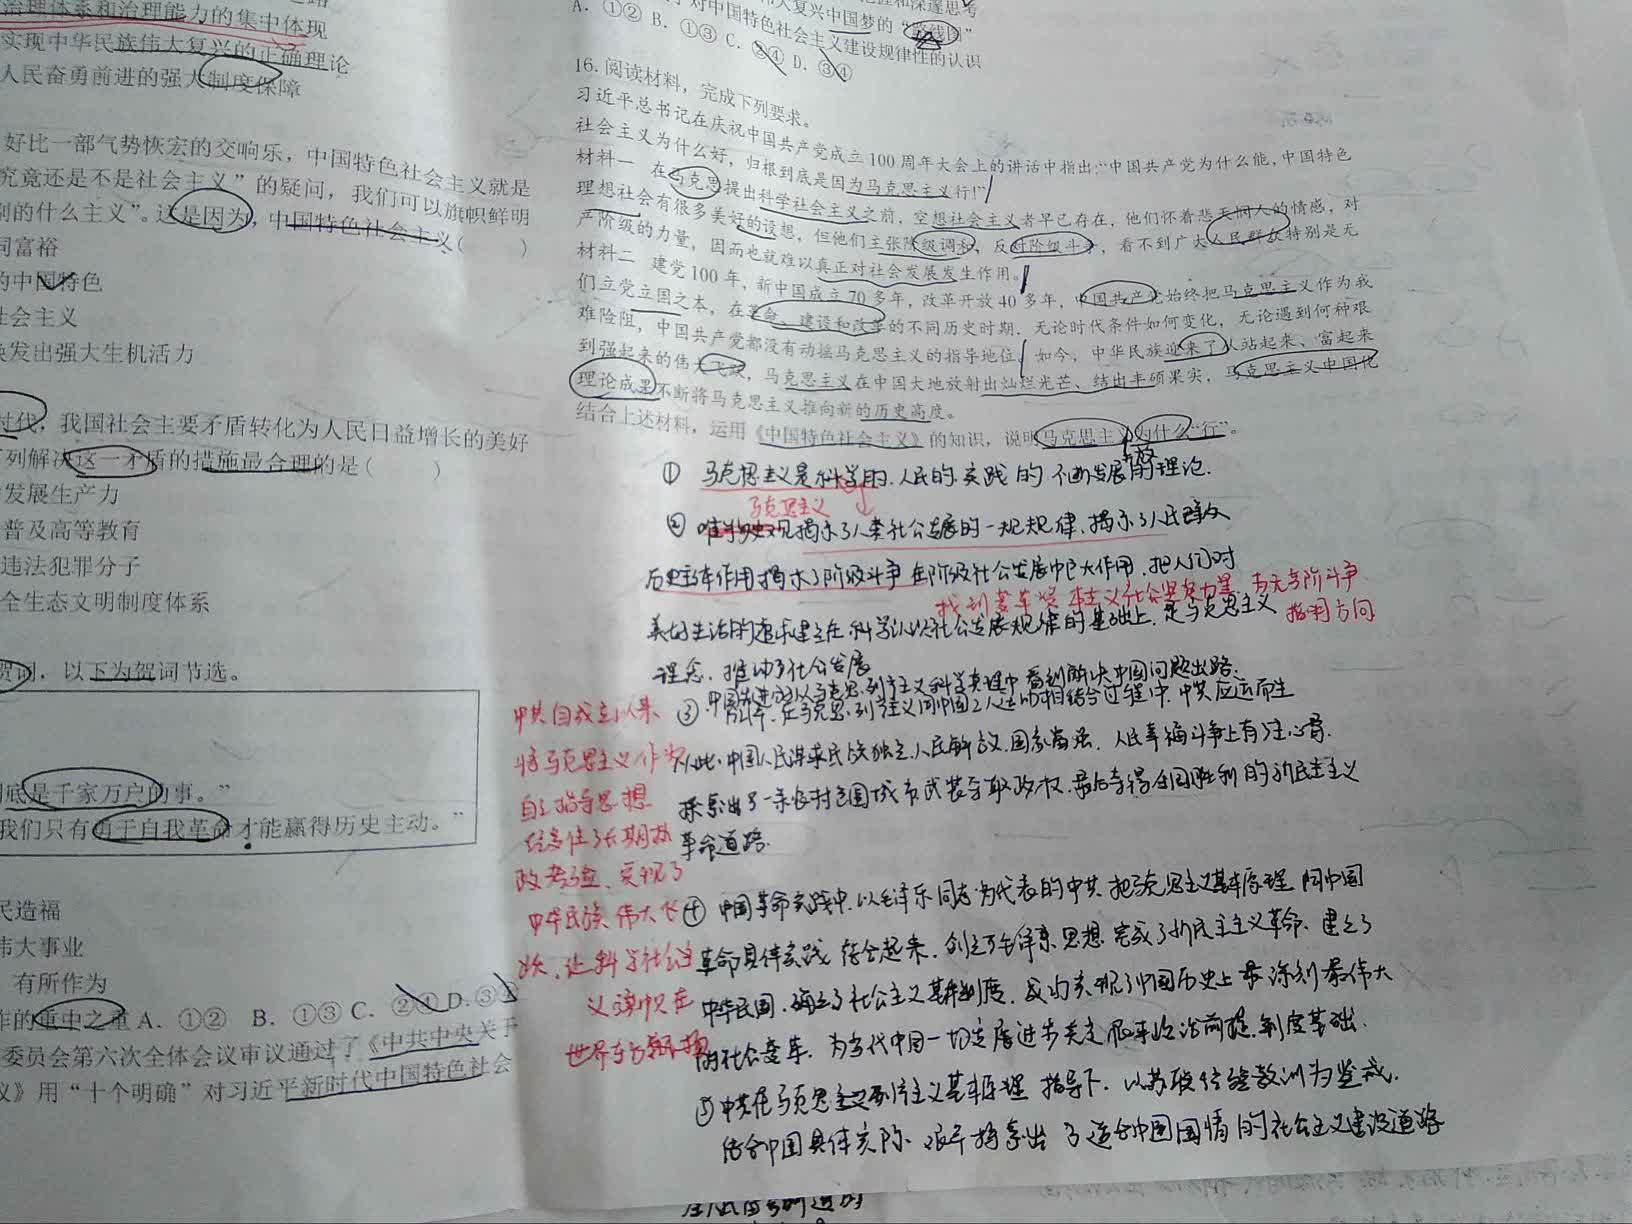 治理体系和治理能力的集中体现
实现中华民族伟大复兴的正确理论
人民奋勇前进的强大制度保障
好比一部气势恢宏的交响乐，中国特色社会主义就是
究竟还是不是社会主义”的疑问，我们可以旗帜鲜明
别的什么主义”。这是因为，中国特色社会主义（　　）
同富裕
的中国特色
社会主义
焕发出强大生机活力
时代，我国社会主要矛盾转化为人民日益增长的美好
下列解决这一矛盾的措施最合理的是（　　）
发展生产力
普及高等教育
违法犯罪分子
全生态文明制度体系
贺词，以下为贺词节选。
到底是千家万户的事。”
我们只有勇于自我革命才能赢得历史主动。”
民造福
伟大事业
有所作为
作的重中之重 A. ①② B. ①③ C. ②④ D. ③④
委员会第六次全体会议审议通过了《中共中央关于
议》用“十个明确”对习近平新时代中国特色社会
大复兴中国梦的“路线图”
对中国特色社会主义建设规律性的认识
A. ①② B. ①③ C. ②④ D. ③④
16. 阅读材料，完成下列要求。
习近平总书记在庆祝中国共产党成立 100 周年大会上的讲话中指出：“中国共产党为什么能，中国特色
社会主义为什么好，归根到底是因为马克思主义行！”
材料一 在马克思提出科学社会主义之前，空想社会主义者早已存在，他们怀着悲天悯人的情感，对
理想社会有很多美好的设想，但他们主张阶级调和，反对阶级斗争，看不到广大人民群众特别是无
产阶级的力量，因而也就难以真正对社会发展发生作用。
材料二 建党 100 年，新中国成立 70 多年，改革开放 40 多年，中国共产党始终把马克思主义作为我
们立党立国之本，在革命、建设和改革的不同历史时期，无论时代条件如何变化，无论遇到何种艰
难险阻，中国共产党都没有动摇马克思主义的指导地位。如今，中华民族迎来了从站起来、富起来
到强起来的伟大飞跃，马克思主义在中国大地放射出灿烂光芒、结出丰硕果实，马克思主义中国化
理论成果不断将马克思主义推向新的历史高度。
结合上述材料，运用《中国特色社会主义》的知识，说明马克思主义为什么“行”。
① 马克思主义是科学的、人民的、实践的、不断发展开放的理论.
马克思主义
② 唯物史观揭示了人类社会发展的一般规律、揭示了人民群众
历史主体作用揭示了阶级斗争在阶级社会发展中巨大作用、把人们对
找到变革资本主义社会坚实力量、为无产阶级斗争
指明方向
美好生活的追求建立在科学认识社会发展规律的基础上、是马克思主义
理念、推动了社会发展
③ 中国先进分子从马克思列宁主义科学真理中看到解决中国问题出路.
在马克思列宁主义同中国工人运动相结合过程中、中共应运而生
从此、中国人民谋求民族独立、人民解放、国家富强、人民幸福斗争上有了主心骨.
探索出了一条农村包围城市武装夺取政权、最后夺得全国胜利的新民主主义
革命道路.
中共自成立以来
将马克思主义作为
自己指导思想
经受住了长期执
政考验、实现了
中华民族伟大飞
跃、让科学社会主
义旗帜在
世界东方飘扬
④ 中国革命实践中、以毛泽东同志为代表的中共把马克思主义基本原理同中国
革命具体实践结合起来、创立了毛泽东思想、完成了新民主主义革命、建立了
中华民国、确立了社会主义基本制度、成功实现了中国历史上最深刻最伟大
的社会变革、为当代中国一切发展进步奠定根本政治前提、制度基础.
⑤ 中共在马克思主义列宁主义基本原理指导下、以苏联经验教训为鉴戒、
结合中国具体实际、艰辛探索出了适合中国国情的社会主义建设道路